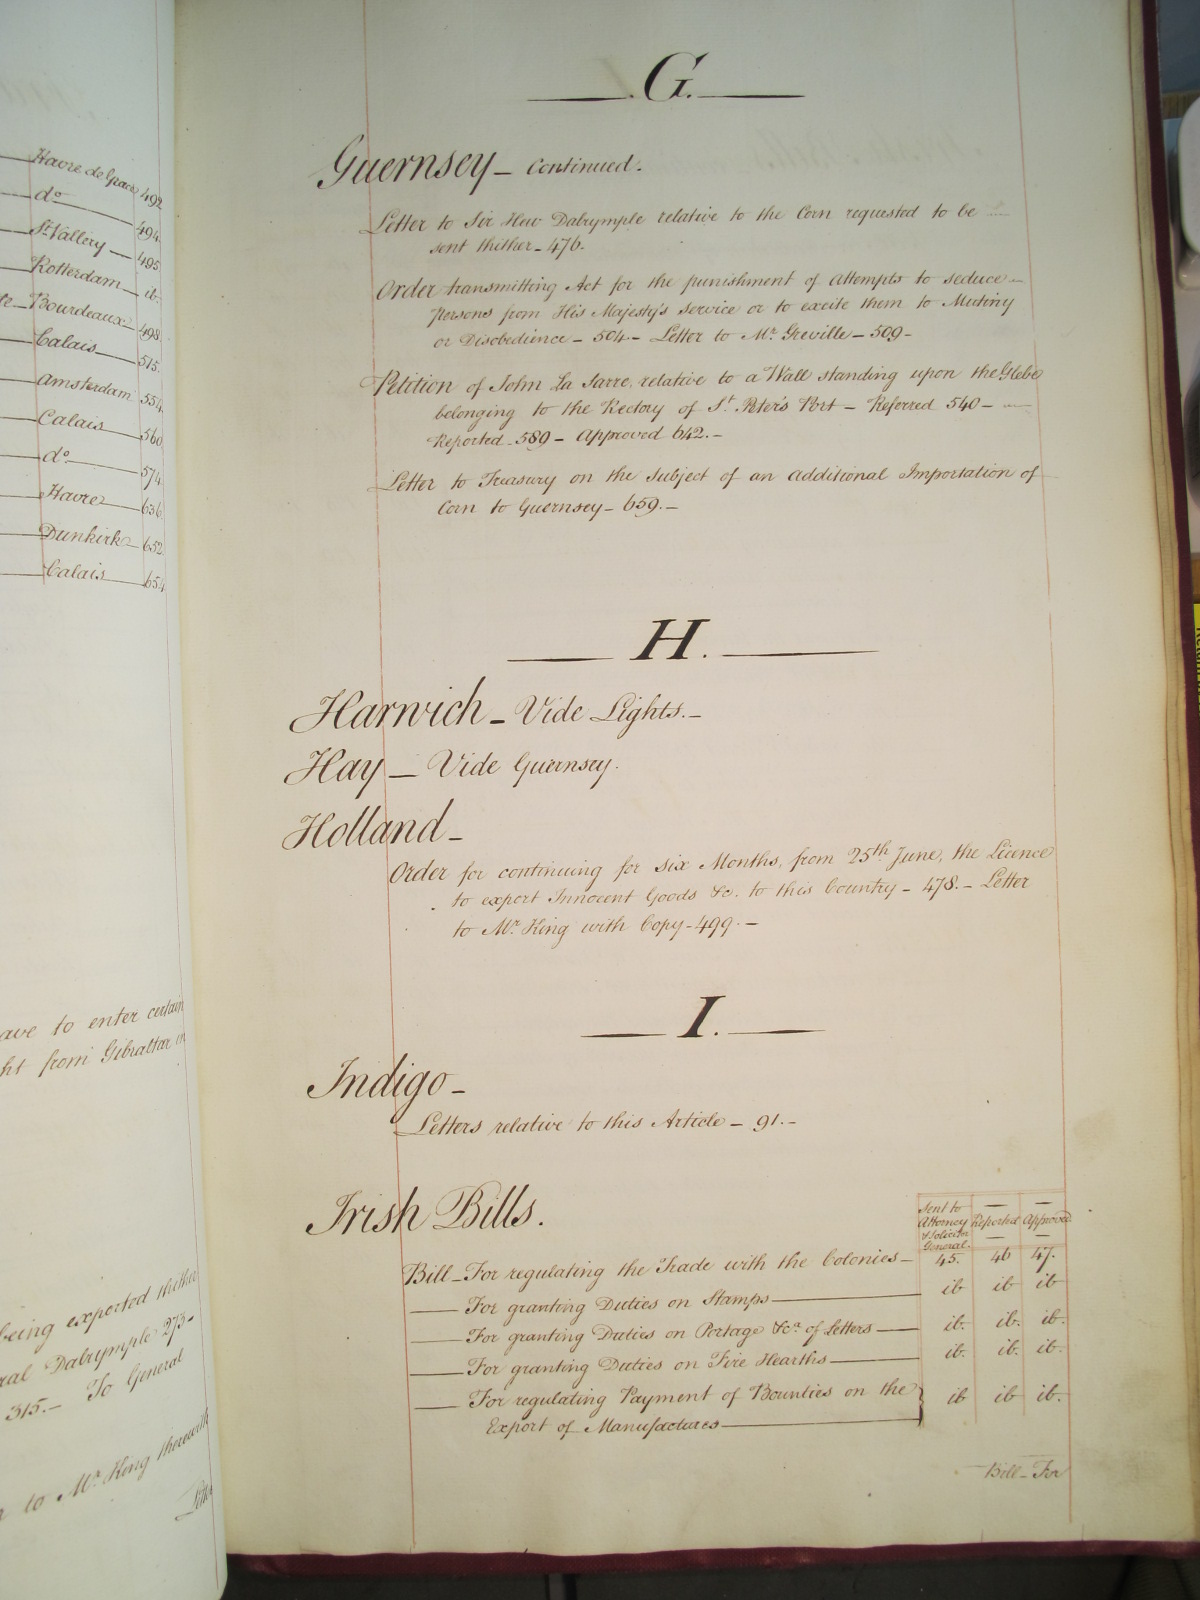 Havre de Grace 492
do 494
St Vallery 495
Rotterdam ib.
Bourdeaux 498
Calais 515.
Amsterdam 554
Calais 560
do 574
Havre 636
Dunkirk 652
Calais 654
ave to enter certain
ht from Gibraltar in
being exported thither
ral Dalrymple 273-
315.- To General
to Mr. King therewith
Letter
G.
Guernsey - Continued.
Letter to Sir Hew Dalrymple relative to the Corn requested to be
sent thither - 476.
Order transmitting Act for the punishment of Attempts to seduce
persons from His Majesty's Service or to excite them to Mutiny
or Disobedience - 504 - Letter to Mr. Greville - 509 -
Petition of John La Sarre, relative to a Wall standing upon the Glebe
belonging to the Rectory of St. Peter's Port - Referred 540 -
Reported - 589 - Approved 642. -
Letter to Treasury on the Subject of an additional Importation of
Corn to Guernsey - 659. -
H.
Harwich - Vide Lights. -
Hay - Vide Guernsey.
Holland -
Order for continuing for six Months, from 25th June, the Licence
to export Innocent Goods &c. to this Country - 478. - Letter
to Mr. King with Copy - 499. -
I.
Indigo -
Letters relative to this Article - 91. -
Irish Bills.
Sent to Attorney & Solicitor General. Reported Approved
Bill - For regulating the Trade with the Colonies - 45. 46 47.
For granting Duties on Stamps ib ib ib
For granting Duties on Portage &ca. of Letters ib. ib. ib.
For granting Duties on Fire Hearths ib. ib. ib.
For regulating Payment of Bounties on the ib ib ib.
Export of Manufactures
Bill - For